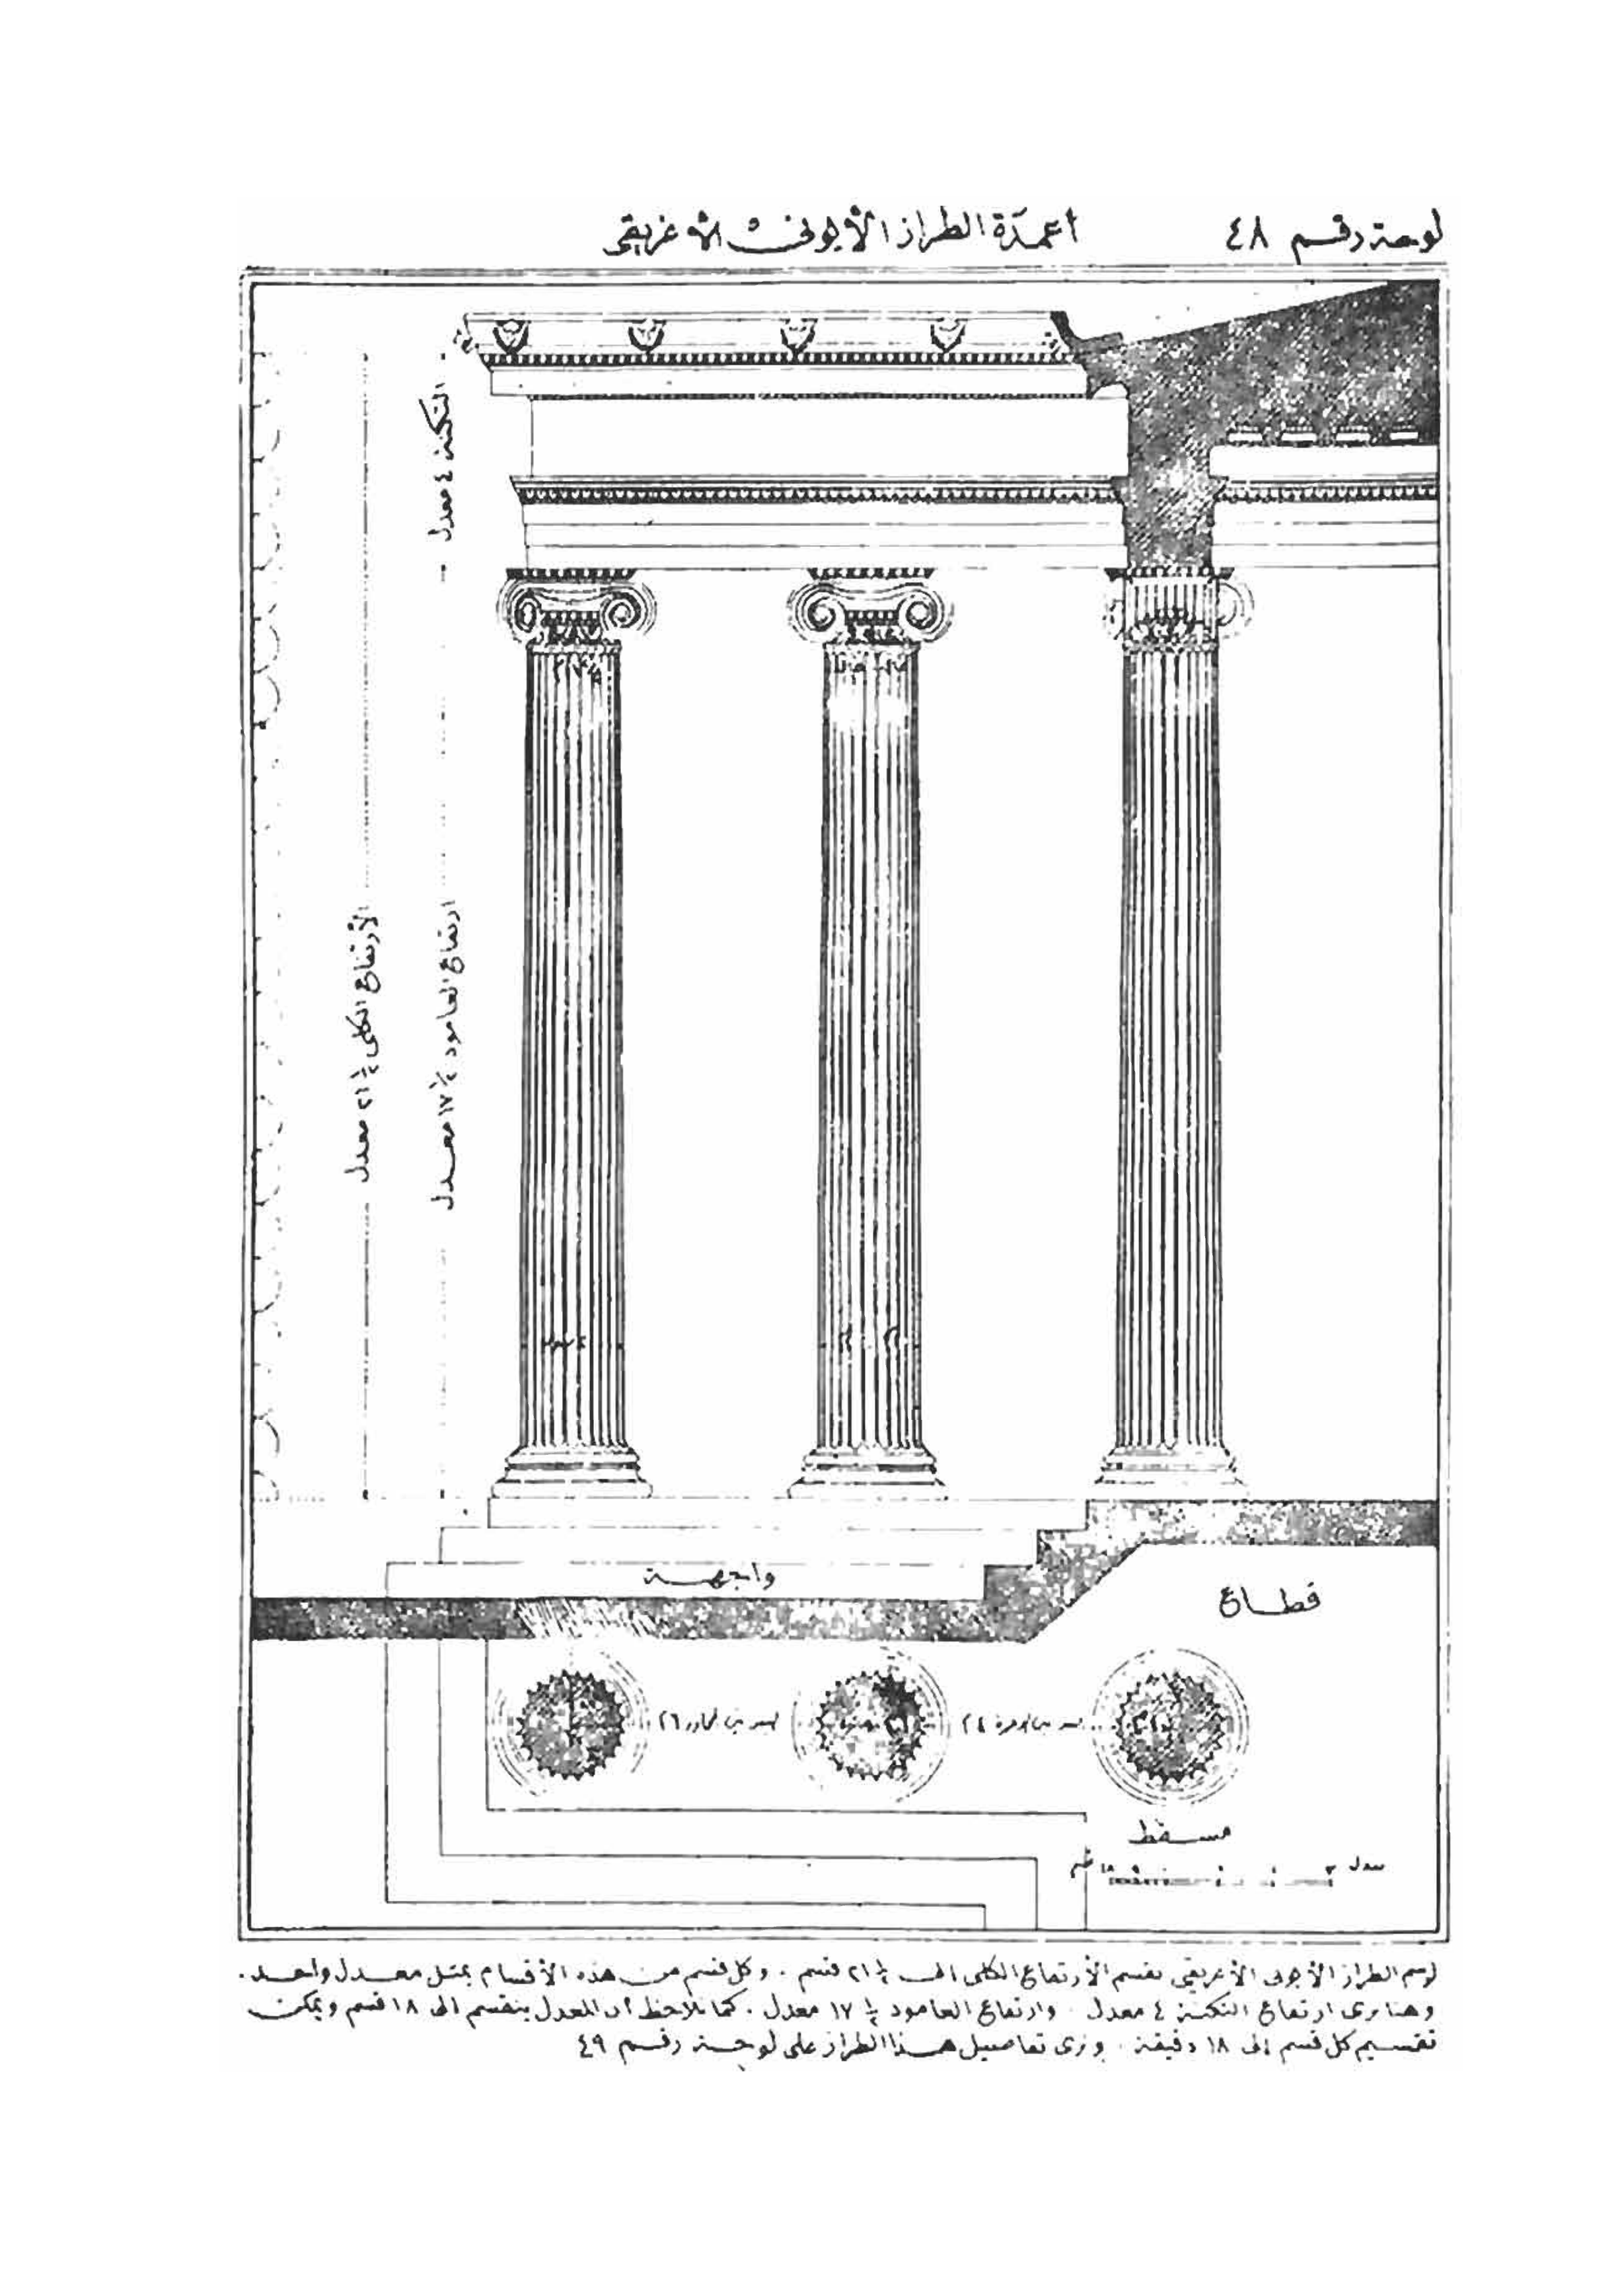 لوحة رقم ٤٨
أعمدة الطراز الأيونى الأغريقى
التكنة ٤ معدل
الأرتفاع الكلى ½ ٢١ معدل
ارتفاع العامود ½ ١٧ معدل
واجهة
قطاع
٢٦
٢٤
مسقط
١٨ ٩
٣ معدل
لرسم الطراز الأيونى الأغريقى نقسم الأرتفاع الكلى الى ½ ٢١ قسم . وكل قسم من هذه الأقسام يمثل معدل واحد .
وهنا نرى ارتفاع التكنة ٤ معدل . وارتفاع العامود ½ ١٧ معدل . كما نلاحظ أن المعدل ينقسم الى ١٨ قسم ويمكن
تقسيم كل قسم الى ١٨ دقيقة . ونرى تفاصيل هذا الطراز على لوحة رقم ٤٩